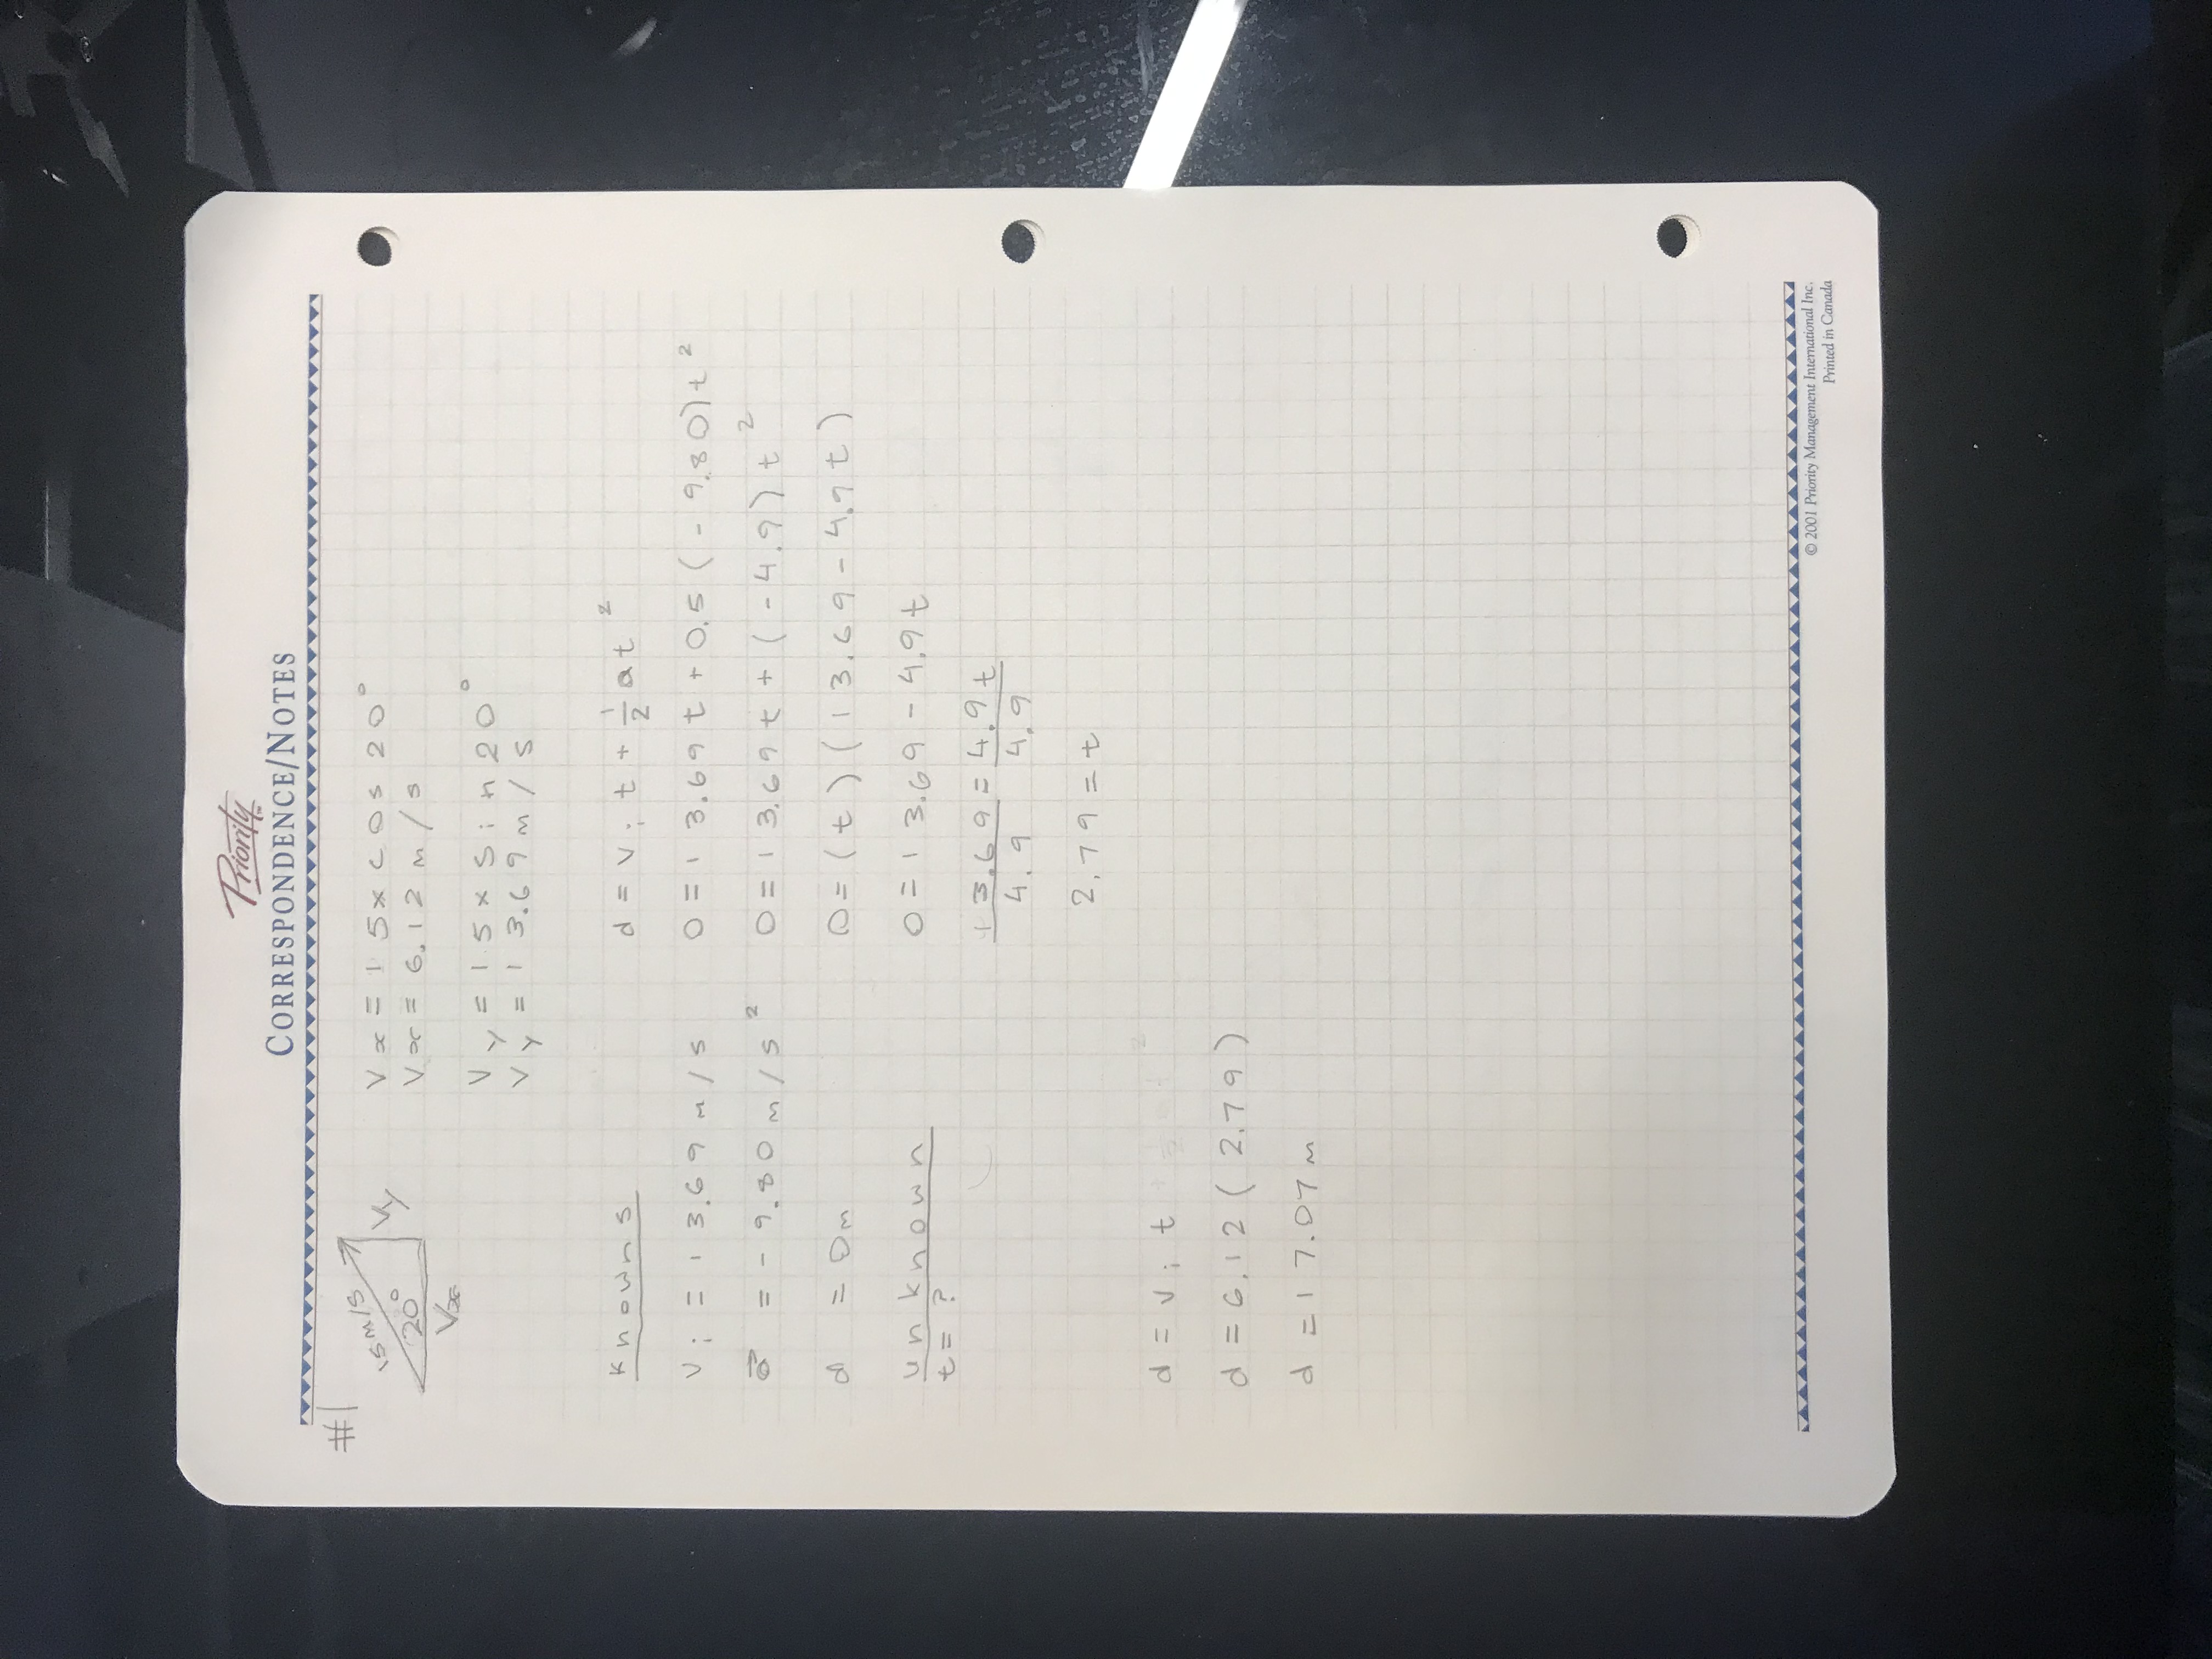 Priority™
CORRESPONDENCE/NOTES
#1
15 m/s
20°
Vy
Vx
Vx = 15 x cos 20°
Vx = 6.12 m/s
Vy = 15 x sin 20°
Vy = 13.69 m/s
knowns
vi = 13.69 m/s
a⃗ = -9.80 m/s²
d = 0m
unknown
t = ?
d = vi t + 1/2 at²
0 = 13.69t + 0.5(-9.80)t²
0 = 13.69t + (-4.9)t²
0 = (t)(13.69 - 4.9t)
0 = 13.69 - 4.9t
13.69 = 4.9t
4.9 4.9
2.79 = t
d = vi t
d = 6.12(2.79)
d = 17.07m
© 2001 Priority Management International Inc.
Printed in Canada